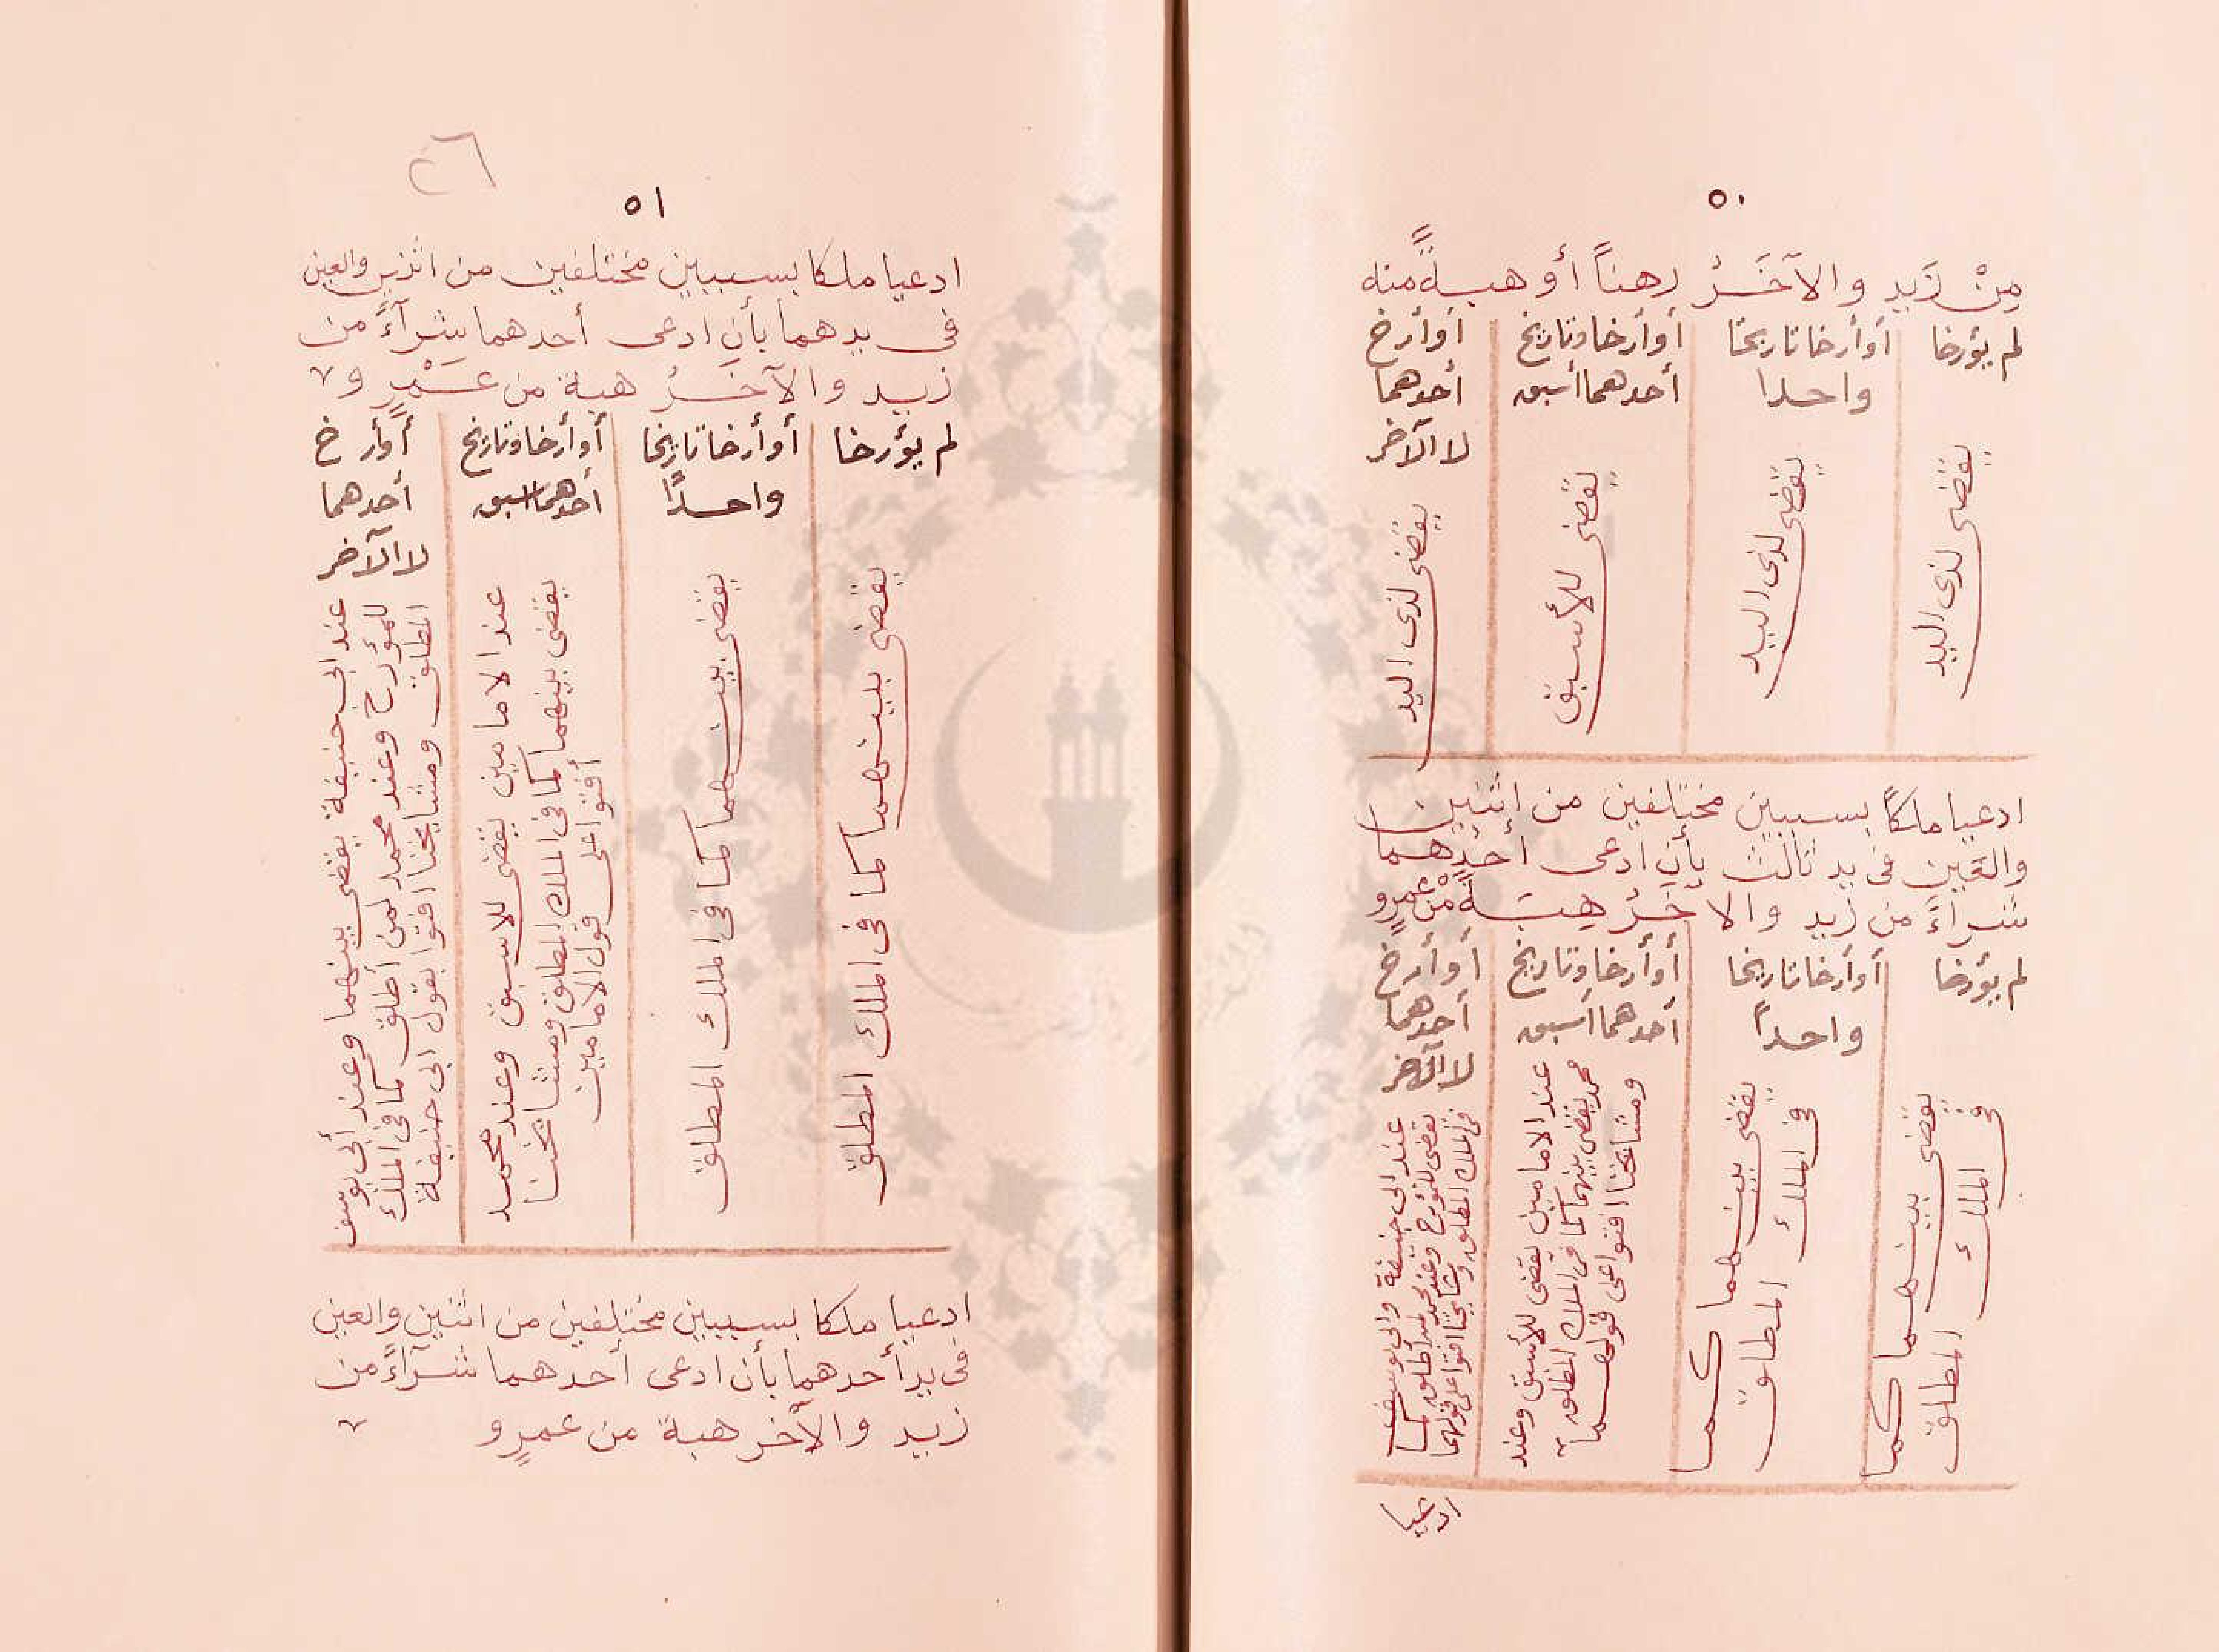 ٥٠
مِنْ زَيدٍ والآخَرُ رهناً أو هبةً منه
لم يؤرخا
أوأرخا تاريخا
واحدا
أوأرخا وتاريخ
أحدهما أسبق
أوأرخ
أحدهما
لا الآخر
يقضى لذى اليد
يقضى لذى اليد
يقضى للأسبق
يقضى لذى اليد
ادعيا ملكاً بسببين مختلفين من اثنين
والعين فى يد ثالث بأن ادعى أحدهما
شرآءً من زيد والآخرُ هبةً من عمرٍو
لم يؤرخا
أوأرخا تاريخا
واحداً
أوأرخا وتاريخ
أحدهما أسبق
أوأرخ
أحدهما
لا الآخر
يقضى بينهما كما
فى الملك المطلق
يقضى بينهما كما
فى الملك المطلق
عند الامامين يقضى للأسبق وعند
محمد يقضى بينهما كما فى الملك المطلق
ومشايخنا افتوا على قولهما
عند ابى حنيفة وابى يوسف
يقضى للمؤرخ وعند محمد لمن أطلق كما
فى الملك المطلق ومشايخنا افتوا على قولهما
ادعيا
٢٦
٥١
ادعيا ملكا بسببين مختلفين من اثنين والعين
فى يدهما بأن ادعى أحدهما شرآءً من
زيد والآخَرُ هبة من عَمْرٍو
لم يؤرخا
أوأرخا تاريخا
واحداً
أوأرخا وتاريخ
أحدهما اسبق
أوأرخ
أحدهما
لا الآخر
يقضى بينهما كما فى الملك المطلق
يقضى بينهما كما فى الملك المطلق
عند الامامين يقضى للاسبق وعند محمد
يقضى بينهما كما فى الملك المطلق ومشايخنا
أفتوا على قول الامامين
عند ابى حنيفة يقضى بينهما وعند أبى يوسف
للمؤرخ وعند محمد لمن أطلق كما فى الملك
المطلق ومشايخنا افتوا بقول ابى حنيفة
ادعيا ملكا بسببين مختلفين من اثنين والعين
فى يد أحدهما بأن ادعى أحدهما شرآءً من
زيد والآخر هبة من عمرٍو